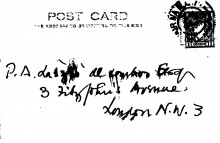 POST CARD
THE ADDRESS TO BE WRITTEN ON THIS SIDE
P. A. de László de Lombos Esq
3 Fitzjohn's Avenue
London N.W. 3